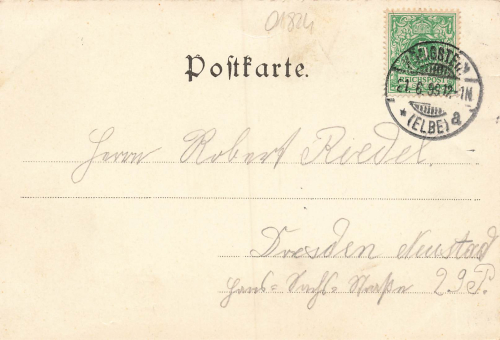 01824
Postkarte.
5
REICHSPOST
KÖNIGSTEIN
21.6.99.12-1N
* (ELBE) a
Herrn Robert Riedel.
Dresden Neustad
Hans-Sachs-Straße 29 P.